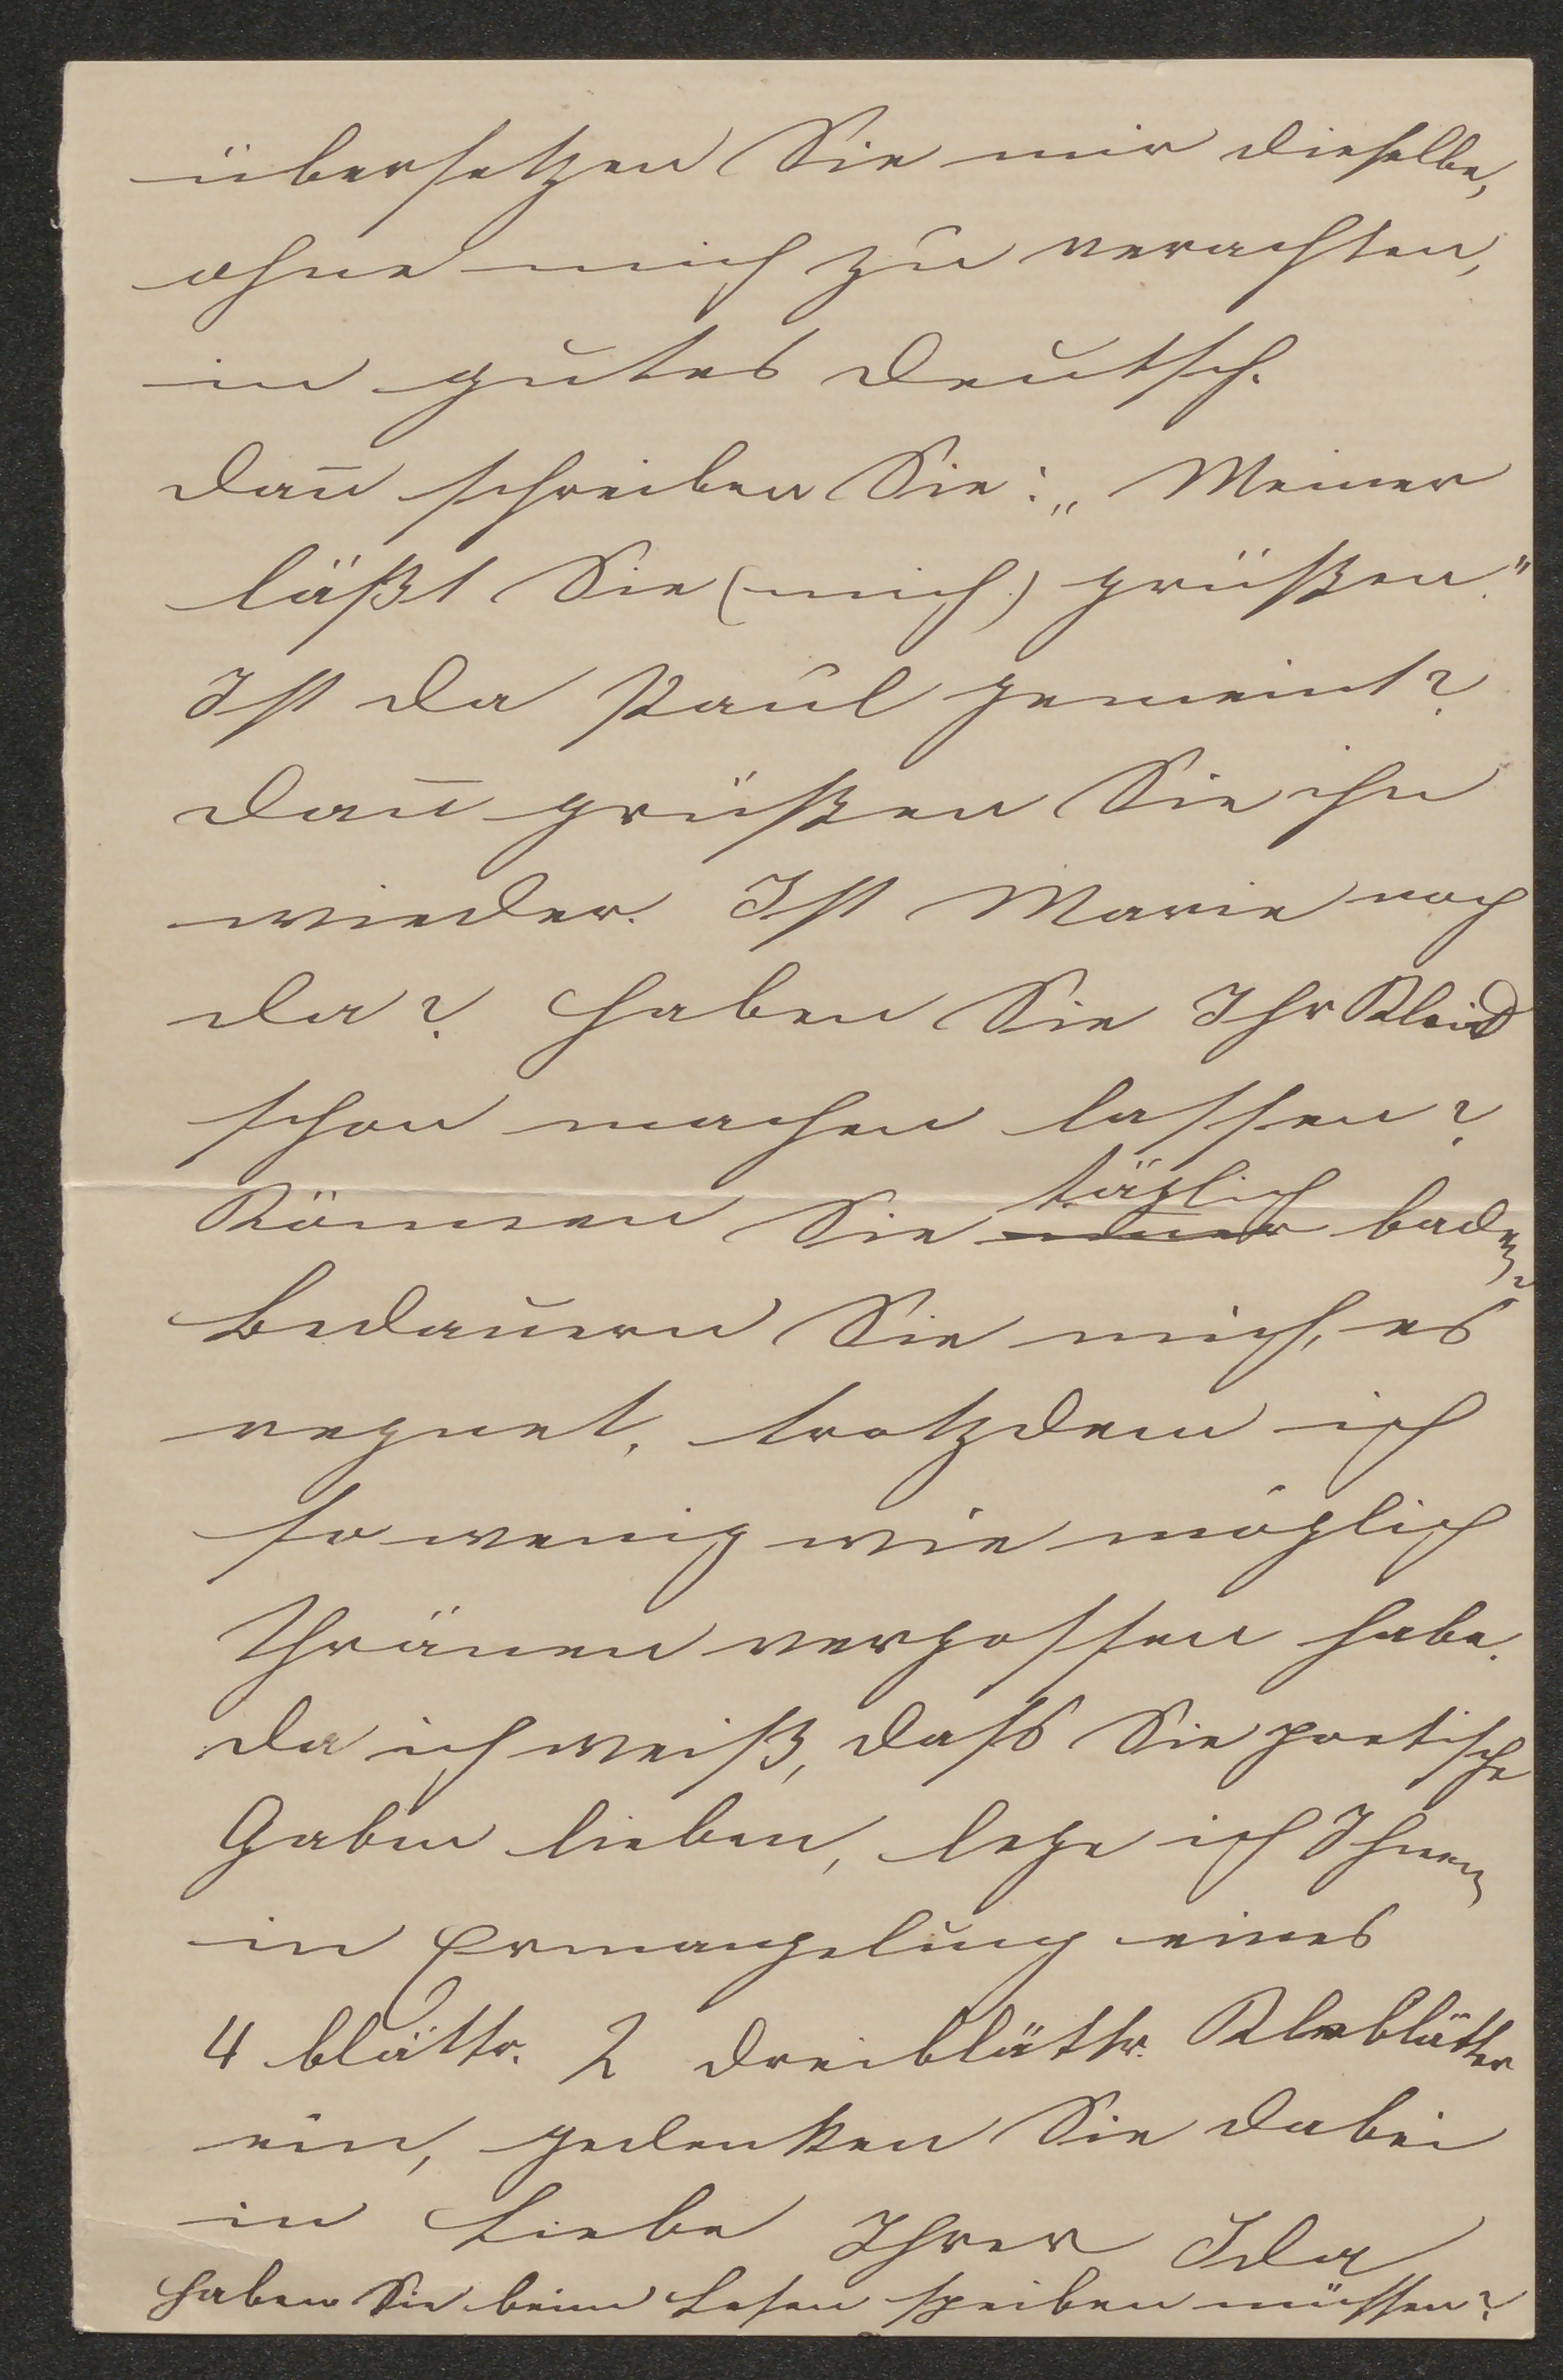 übersetzen Sie mir dieselbe,
ohne mich zu verachten,
in gutes Deutsch.
Dan̅ schreiben Sie: „Meiner
läßt Sie (mich) grüßen."
Ist da Paul gemeint?
Dan̅ grüßen Sie ihn
wieder. Ist Marie noch
da? Haben Sie Ihr Kleid
schon machen lassen?
täglich
Können Sie baden?
Bedauern Sie mich, es
regnet, trotzdem ich
so wenig wie möglich
Thränen vergossen habe.
Da ich weiß, dass Sie poetische
Gaben lieben, lege ich Ihnen
in Ermangelung eines
4 blättr. 2 dreiblättr. Kleeblätter
ein, gedenken Sie dabei
in Liebe Ihrer Ida
Haben Sie beim Lesen speiben müssen?